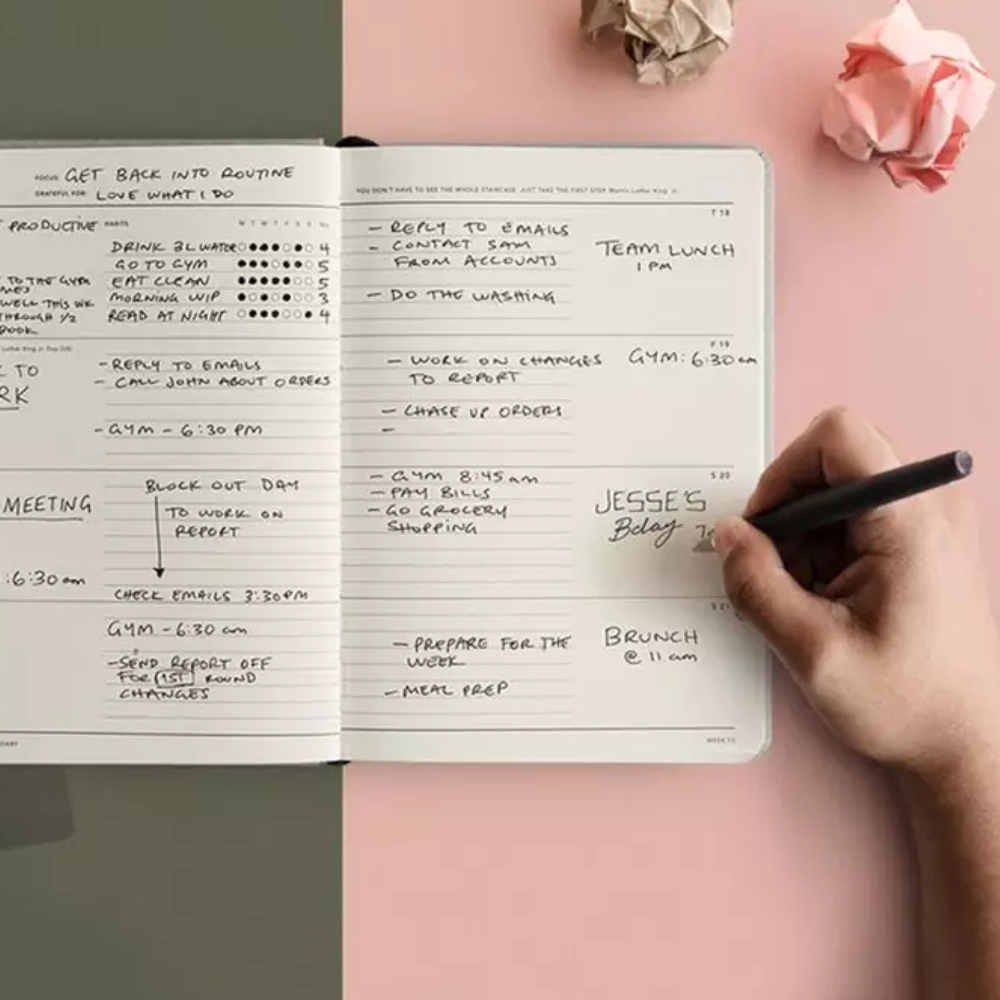 FOCUS: GET BACK INTO ROUTINE
GRATEFUL FOR: LOVE WHAT I DO
PRODUCTIVE
HABITS M T W T F S S
DRINK 3L WATER 4
GO TO GYM 5
EAT CLEAN 5
MORNING WIP 3
READ AT NIGHT 4
TO THE GYM
WELL THIS WK
THROUGH 1/2
BOOK
Luther King Jr. Day (US)
TO
RK
- REPLY TO EMAILS
- CALL JOHN ABOUT ORDERS
- GYM - 6:30 PM
MEETING
:6:30am
BLOCK OUT DAY
TO WORK ON
REPORT
CHECK EMAILS 3:30PM
GYM - 6:30 am
- SEND REPORT OFF
FOR 1ST ROUND
CHANGES
YOU DON'T HAVE TO SEE THE WHOLE STAIRCASE, JUST TAKE THE FIRST STEP. Martin Luther King Jr.
T 18
- REPLY TO EMAILS
- CONTACT SAM
FROM ACCOUNTS
- DO THE WASHING
TEAM LUNCH
1 PM
F 19
- WORK ON CHANGES
TO REPORT
- CHASE UP ORDERS
-
GYM: 6:30am
S 20
- GYM 8:45am
- PAY BILLS
- GO GROCERY
SHOPPING
JESSE'S
Bday
S 21
- PREPARE FOR THE
WEEK
- MEAL PREP
BRUNCH
@ 11 am